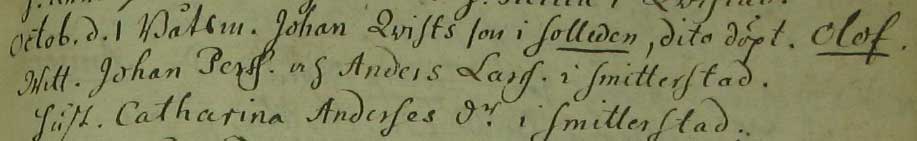 Octob. d. 1 Båtsm. Johan Qvists son i Solleden, dito döpt. Olof.
Witt. Johan Perss. och Anders Larss. i Smitterstad.
Hust. Catharina Anderses dr. i Smitterstad.